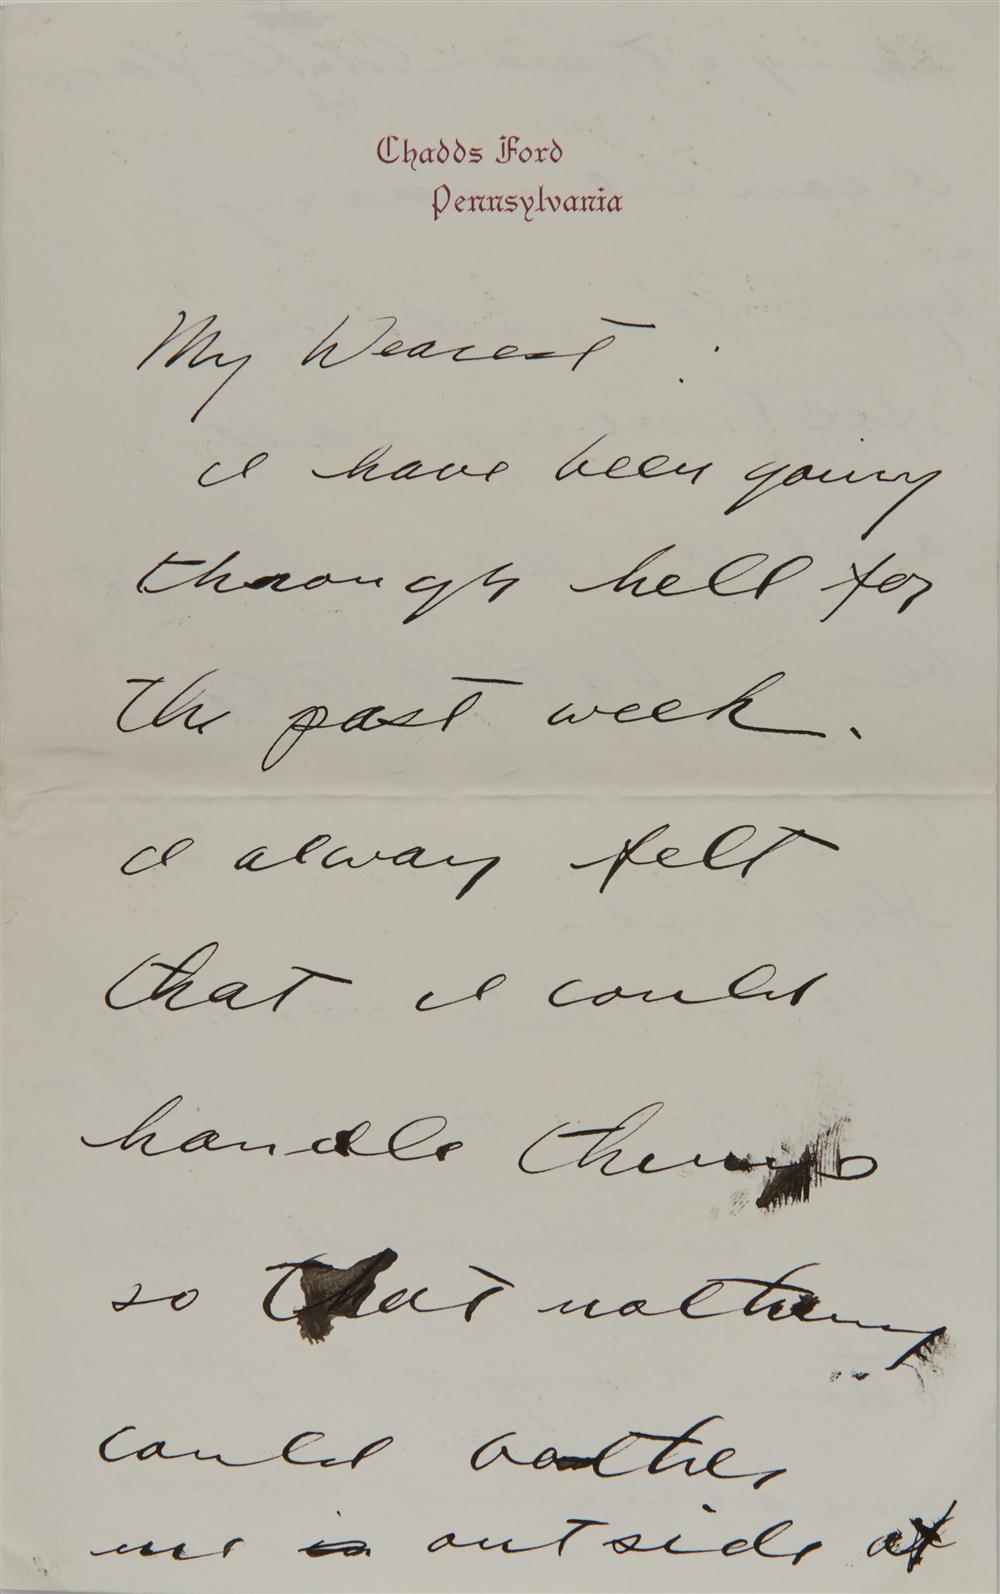 Chadds Ford
Pennsylvania
My Dearest :
I have been going
through hell for
the past week.
I alway felt
that I could
handle things
so that nothing
could bother
me is outside of